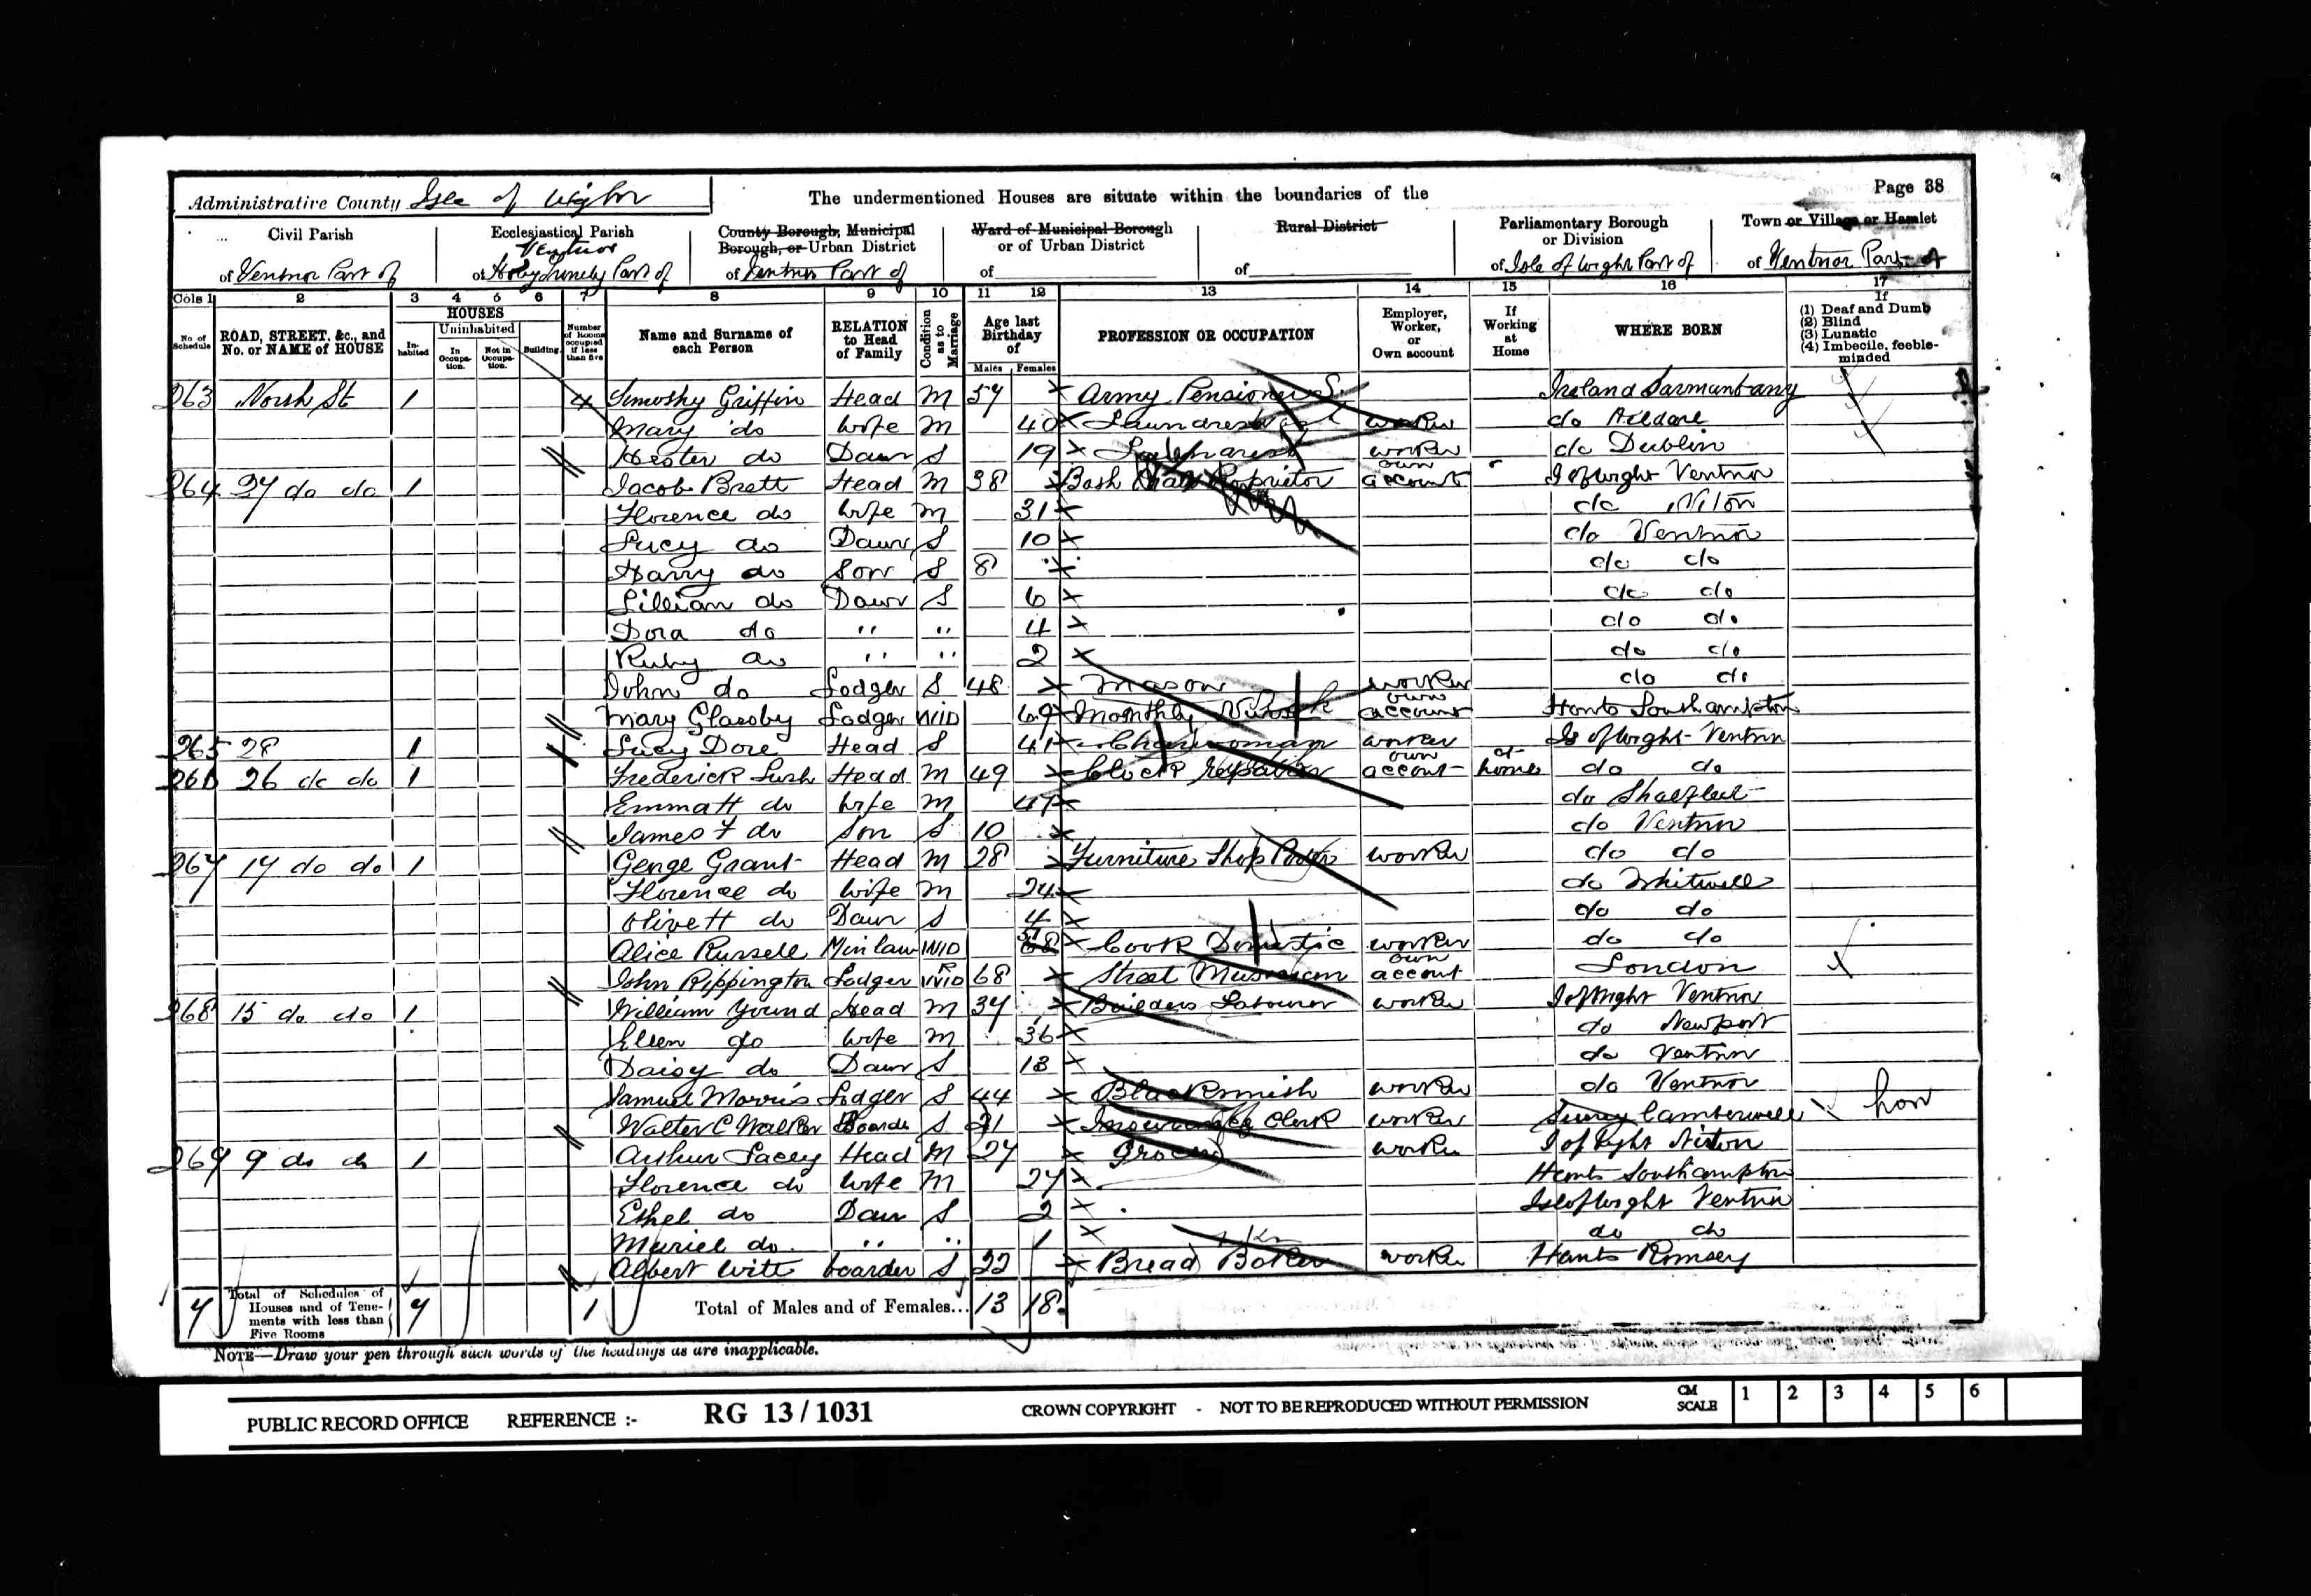 Page 38
Administrative County Isle of Wight The undermentioned Houses are situate within the boundaries of the
Civil Parish Ecclesiastical Parish County Borough, Municipal Borough, or Urban District Ward of Municipal Borough or of Urban District Rural District Parliamentary Borough or Division Town or Village or Hamlet
of Ventnor Part of of Ventnor Holy Trinity Part of of Ventnor Part of of of of Isle of Wight Part of of Ventnor Part of
Cols 1 2 3 4 5 6 7 8 9 10 11 12 13 14 15 16 17
No of Schedule ROAD, STREET, &c., and No. or NAME of HOUSE HOUSES Inhabited Uninhabited In Occupation. Not in Occupation. Building. Number of Rooms occupied if less than five Name and Surname of each Person RELATION to Head of Family Condition as to Marriage Age last Birthday of Males Females PROFESSION OR OCCUPATION Employer, Worker, or Own account If Working at Home WHERE BORN If (1) Deaf and Dumb (2) Blind (3) Lunatic (4) Imbecile, feeble-minded
263 North St 1 4 Timothy Griffin Head M 57 Army Pensioner Ireland
Mary do Wife M 40 Laundress worker do Kildare
Hester do Daur S 19 worker do Dublin
264 27 do do 1 Jacob Brett Head M 38 Bath Chair Proprietor own account I of Wight Ventnor
Florence do Wife M 31 do Niton
Lucy do Daur S 10 do Ventnor
Harry do Son S 8 do do
Lillian do Daur S 6 do do
Dora do " " 4 do do
Ruby do " " 2 do do
John do Lodger S 48 Mason worker do do
Mary Glasby Lodger Wid 69 Monthly Nurse own account Hants Southampton
265 28 1 Lucy Dore Head S 41 Charwoman worker Is of Wight Ventnor
266 26 do do 1 Frederick Lush Head M 49 Clock own account at home do do
Emma H do Wife M 47 do Shalfleet
James F do Son S 10 do Ventnor
267 17 do do 1 George Grant Head M 28 Furniture Shop Porter worker do do
Florence do Wife M 24 do Whitwell
Olive H do Daur S 4 do do
Alice Russell M in law Wid Cook Domestic worker do do
John Rippington Lodger Wid 68 Street Musician own account London
268 15 do do 1 William Young Head M 37 Builders Labourer worker I of Wight Ventnor
Ellen do Wife M 36 do Newport
Daisy do Daur S 13 do Ventnor
Samuel Morris Lodger S 44 Blacksmith worker do Ventnor
Walter C Walker Boarder S 21 Insurance Clerk worker Surrey Camberwell
269 9 do do 1 Arthur Lacey Head M 27 Grocer worker I of Wight Niton
Florence do Wife M 27 Hants Southampton
Ethel do Daur S 2 Isle of Wight Ventnor
Muriel do " " 1 do do
Albert Witt boarder S 22 Bread Baker worker Hants Romsey
7 Total of Schedules of Houses and of Tenements with less than Five Rooms 7 1 Total of Males and of Females... 13 18
NOTE—Draw your pen through such words of the headings as are inapplicable.
PUBLIC RECORD OFFICE REFERENCE :- RG 13/1031 CROWN COPYRIGHT - NOT TO BE REPRODUCED WITHOUT PERMISSION CM SCALE 1 2 3 4 5 6